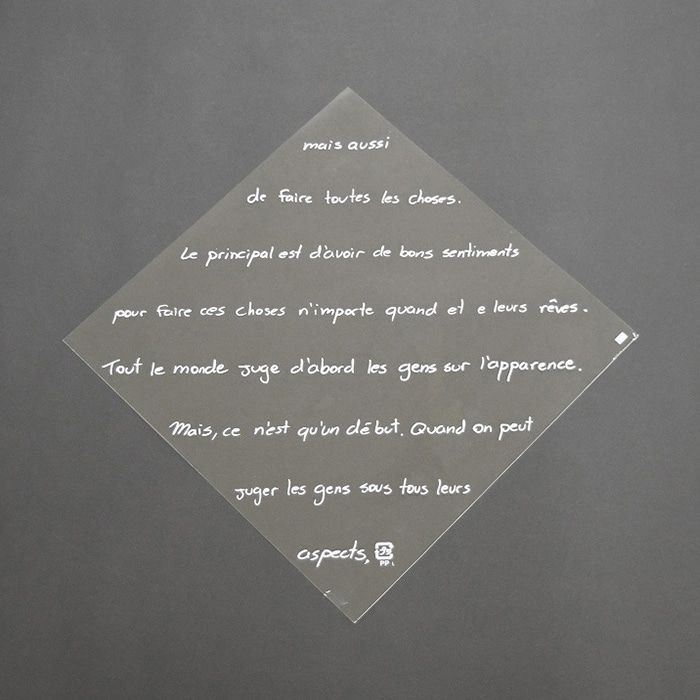 mais aussi
de faire toutes les choses.
Le principal est d'avoir de bons sentiments
pour faire ces choses n'importe quand et e leurs rêves.
Tout le monde juge d'abord les gens sur l'apparence.
Mais, ce n'est qu'un début. Quand on peut
juger les gens sous tous leurs
aspects,
PP